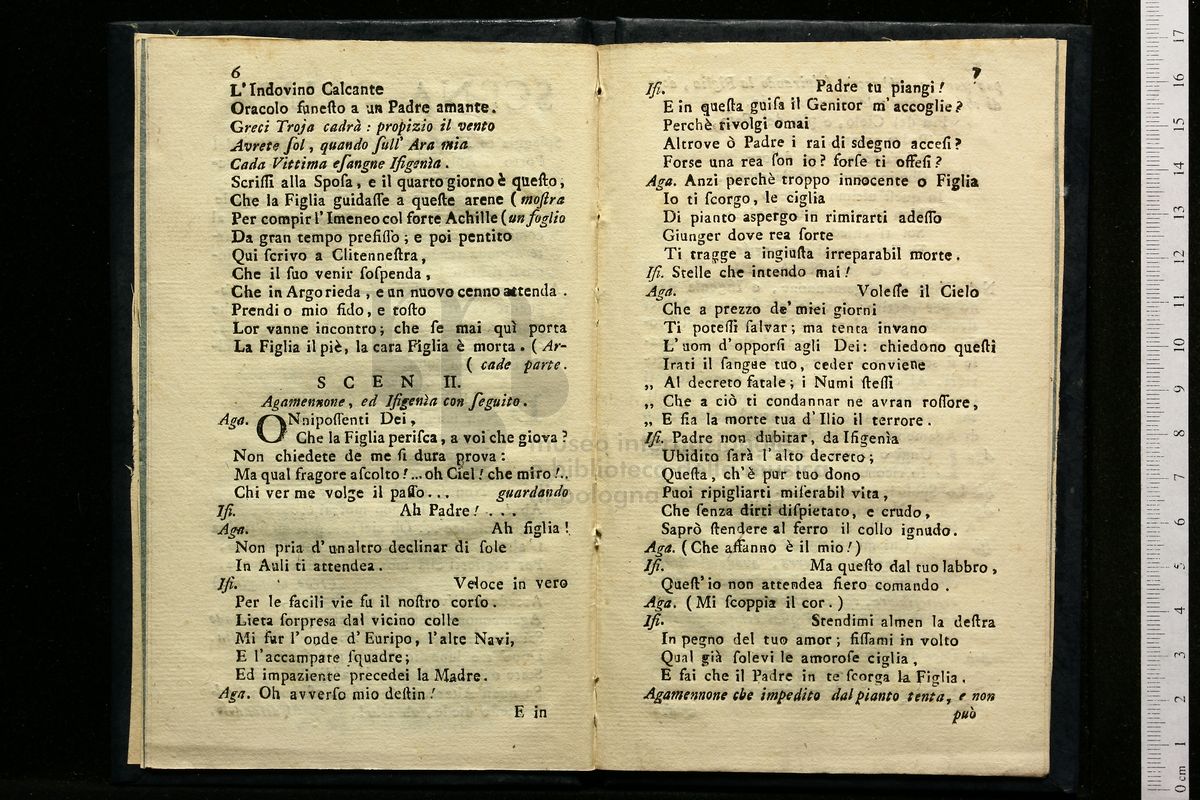 6
L'Indovino Calcante
Oracolo funeſto a un Padre amante.
Greci Troja cadrà : propizio il vento
Avrete ſol, quando ſull' Ara mia
Cada Vittima eſangne Ifigenìa.
Scriſſi alla Spoſa, e il quarto giorno è queſto,
Che la Figlia guidaſſe a queſte arene (moſtra
Per compir l'Imeneo col forte Achille (un foglio
Da gran tempo prefiſſo; e poi pentito
Qui ſcrivo a Clitenneſtra,
Che il ſuo venir ſoſpenda,
Che in Argo rieda, e un nuovo cenno attenda.
Prendi o mio fido, e toſto
Lor vanne incontro; che ſe mai quì porta
La Figlia il piè, la cara Figlia è morta. (Ar-
( cade parte.
S C E N II.
Agamennone, ed Ifigenìa con ſeguito.
Aga. ONnipoſſenti Dei,
Che la Figlia periſca, a voi che giova?
Non chiedete de me ſi dura prova:
Ma qual fragore aſcolto!...oh Ciel! che miro!..
Chi ver me volge il paſſo... guardando
Ifi. Ah Padre! ...
Aga. Ah figlia!
Non pria d'un altro declinar di ſole
In Auli ti attendea.
Ifi. Veloce in vero
Per le facili vie fu il noſtro corſo.
Lieta ſorpresa dal vicino colle
Mi fur l'onde d'Euripo, l'alte Navi,
E l'accampate ſquadre;
Ed impaziente precedei la Madre.
Aga. Oh avverſo mio deſtin!
E in
7
Ifi. Padre tu piangi!
E in queſta guiſa il Genitor m'accoglie?
Perchè rivolgi omai
Altrove ò Padre i rai di sdegno acceſi?
Forse una rea ſon io? forſe ti offeſi?
Aga. Anzi perchè troppo innocente o Figlia
Io ti ſcorgo, le ciglia
Di pianto aspergo in rimirarti adeſſo
Giunger dove rea ſorte
Ti tragge a ingiuſta irreparabil morte.
Ifi. Stelle che intendo mai!
Aga. Voleſſe il Cielo
Che a prezzo de' miei giorni
Ti poteſſi ſalvar; ma tenta invano
L'uom d'opporſi agli Dei: chiedono queſti
Irati il ſangue tuo, ceder conviene
„ Al decreto fatale; i Numi ſteſſi
„ Che a ciò ti condannar ne avran roſſore,
„ E ſia la morte tua d'Ilio il terrore.
Ifi. Padre non dubitar, da Ifigenìa
Ubidito ſarà l'alto decreto;
Queſta, ch'è pur tuo dono
Puoi ripigliarti miſerabil vita,
Che ſenza dirti diſpietato, e crudo,
Saprò ſtendere al ferro il collo ignudo.
Aga. (Che affanno è il mio!)
Ifi. Ma queſto dal tuo labbro,
Queſt'io non attendea fiero comando.
Aga. (Mi ſcoppia il cor.)
Ifi. Stendimi almen la deſtra
In pegno del tuo amor; fiſſami in volto
Qual già ſolevi le amoroſe ciglia,
E fai che il Padre in te ſcorga la Figlia.
Agamennone che impedito dal pianto tenta, e non
può